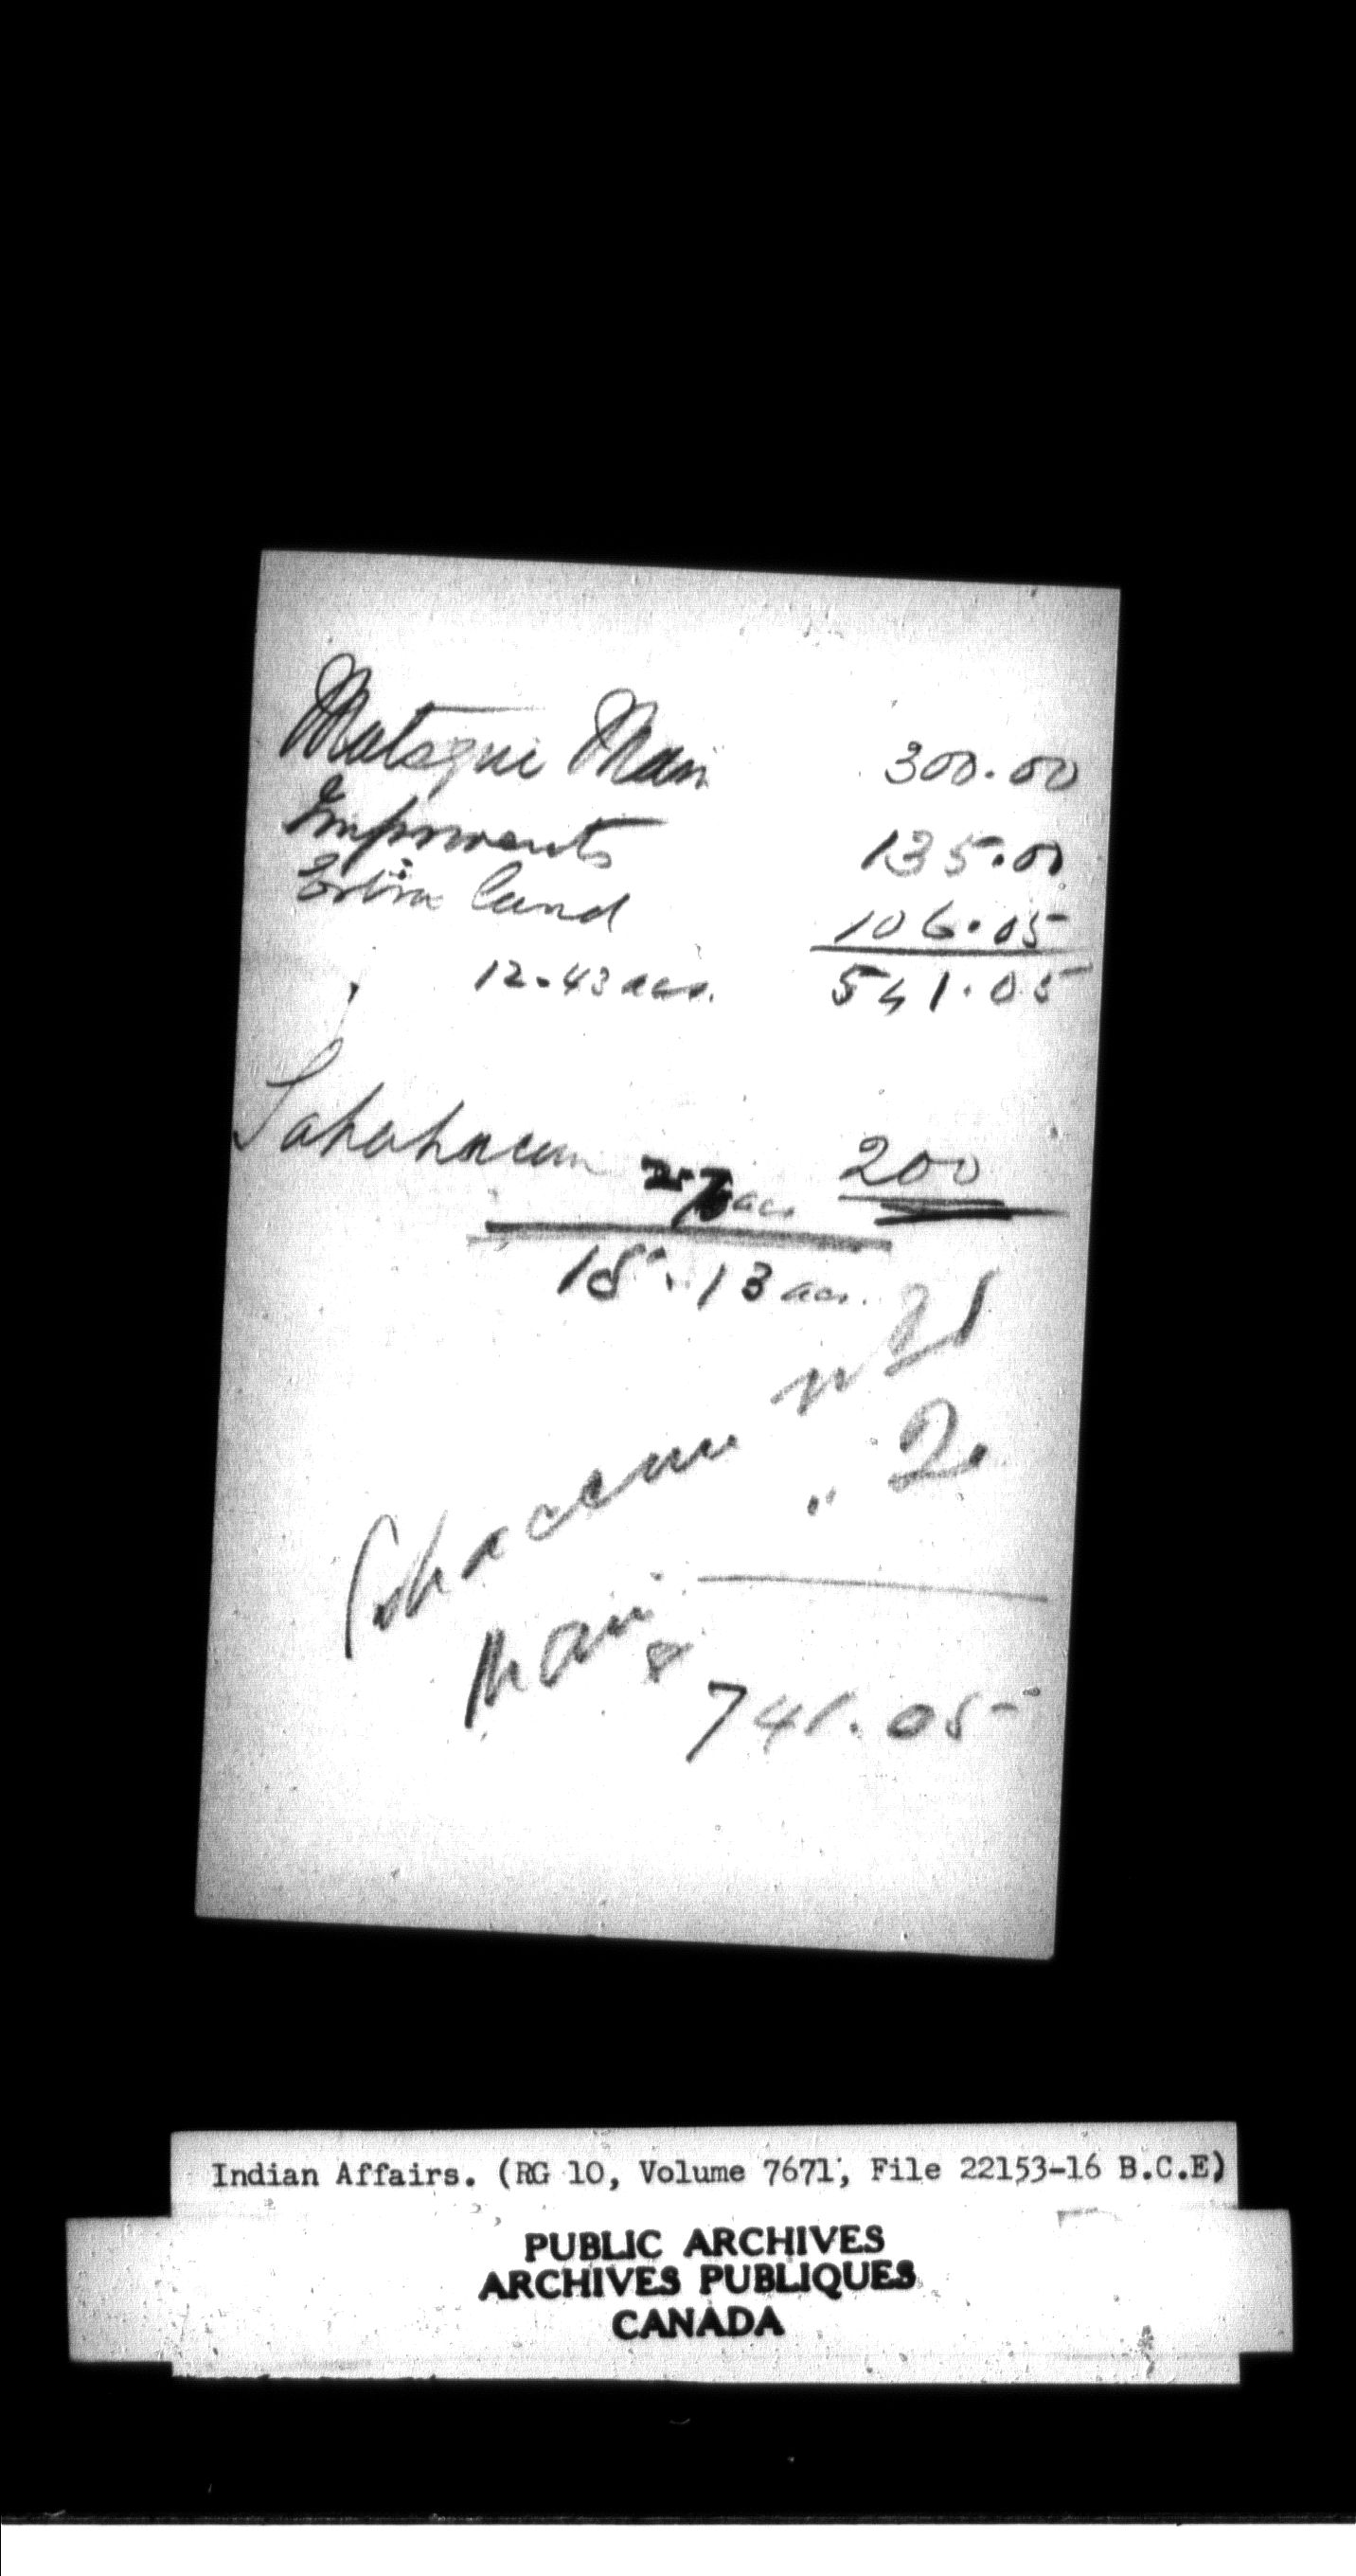 Matsqui Main 300.00
Improvents 135.00
Extra land 106.05
12.43 acs. 541.05
Sahahacum acs 200
15.13 acs.
Sahacum no 1
Main " 2.
&
741.05
Indian Affairs. (RG 10, Volume 7671, File 22153-16 B.C.E)
PUBLIC ARCHIVES
ARCHIVES PUBLIQUES
CANADA